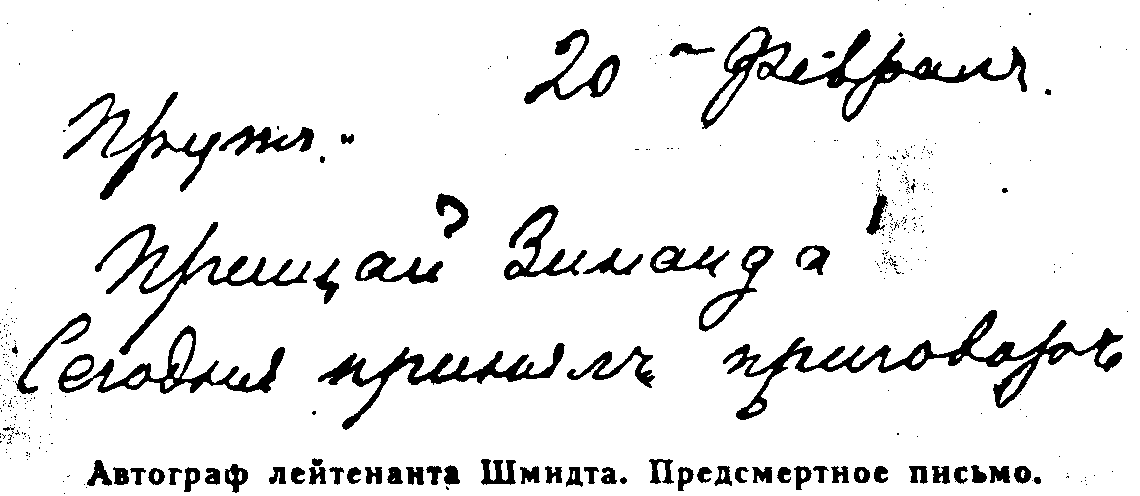 20 – Февраля.
„Прутъ."
Прощай Зинаида!
Сегодня принялъ приговоръ
Автограф лейтенанта Шмидта. Предсмертное письмо.